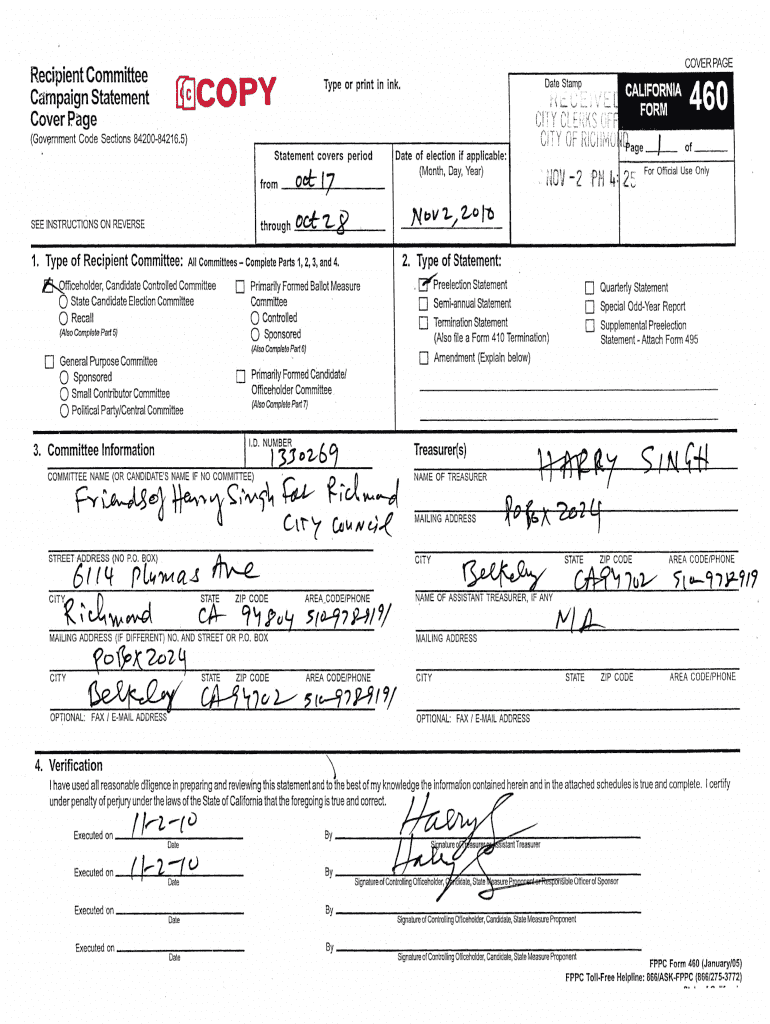 COVER PAGE
Recipient Committee
Campaign Statement
Cover Page
(Government Code Sections 84200-84216.5)
C COPY
Type or print in ink.
Date Stamp
RECEIVED
CITY CLERKS OFF
CITY OF RICHMOND
NOV -2 PM 4: 25
CALIFORNIA
FORM 460
Page 1 of
For Official Use Only
Statement covers period
from oct 17
through oct 28
Date of election if applicable:
(Month, Day, Year)
Nov 2, 2010
SEE INSTRUCTIONS ON REVERSE
1. Type of Recipient Committee: All Committees – Complete Parts 1, 2, 3, and 4.
Officeholder, Candidate Controlled Committee
State Candidate Election Committee
Recall
(Also Complete Part 5)
General Purpose Committee
Sponsored
Small Contributor Committee
Political Party/Central Committee
Primarily Formed Ballot Measure
Committee
Controlled
Sponsored
(Also Complete Part 6)
Primarily Formed Candidate/
Officeholder Committee
(Also Complete Part 7)
2. Type of Statement:
Preelection Statement
Semi-annual Statement
Termination Statement
(Also file a Form 410 Termination)
Amendment (Explain below)
Quarterly Statement
Special Odd-Year Report
Supplemental Preelection
Statement - Attach Form 495
3. Committee Information
I.D. NUMBER
1330269
COMMITTEE NAME (OR CANDIDATE'S NAME IF NO COMMITTEE)
Friends of Harry Singh For Richmond
CITY COUNCIL
STREET ADDRESS (NO P.O. BOX)
6114 Plumas Ave
CITY STATE ZIP CODE AREA CODE/PHONE
Richmond CA 94804 510-978-8191
MAILING ADDRESS (IF DIFFERENT) NO. AND STREET OR P.O. BOX
PO BOX 2024
CITY STATE ZIP CODE AREA CODE/PHONE
Berkeley CA 94702 510-978-9191
OPTIONAL: FAX / E-MAIL ADDRESS
Treasurer(s)
HARRY SINGH
NAME OF TREASURER
PO BOX 2024
MAILING ADDRESS
CITY STATE ZIP CODE AREA CODE/PHONE
Berkeley CA 94702 510-978-919
NAME OF ASSISTANT TREASURER, IF ANY
N/A
MAILING ADDRESS
CITY STATE ZIP CODE AREA CODE/PHONE
OPTIONAL: FAX / E-MAIL ADDRESS
4. Verification
I have used all reasonable diligence in preparing and reviewing this statement and to the best of my knowledge the information contained herein and in the attached schedules is true and complete. I certify
under penalty of perjury under the laws of the State of California that the foregoing is true and correct.
Executed on 11-2-10
Date
By Harry S
Signature of Treasurer or Assistant Treasurer
Executed on 11-2-10
Date
By Harry S
Signature of Controlling Officeholder, Candidate, State Measure Proponent or Responsible Officer of Sponsor
Executed on
Date
By
Signature of Controlling Officeholder, Candidate, State Measure Proponent
Executed on
Date
By
Signature of Controlling Officeholder, Candidate, State Measure Proponent
FPPC Form 460 (January/05)
FPPC Toll-Free Helpline: 866/ASK-FPPC (866/275-3772)